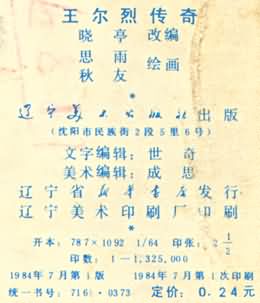 王尔烈传奇
晓亭 改编
思雨
秋友 绘画
*
辽宁美术出版社出版
(沈阳市民族街2段5里6号)
文字编辑:世奇
美术编辑:成思
辽宁省新华书店发行
辽宁美术印刷厂印刷
*
开本:787×1092 1/64 印张:2 1/2
印数:1—1,325,000
1984年7月第1版 1984年7月第1次印刷
统一书号:7161·0373 定价:0.24元